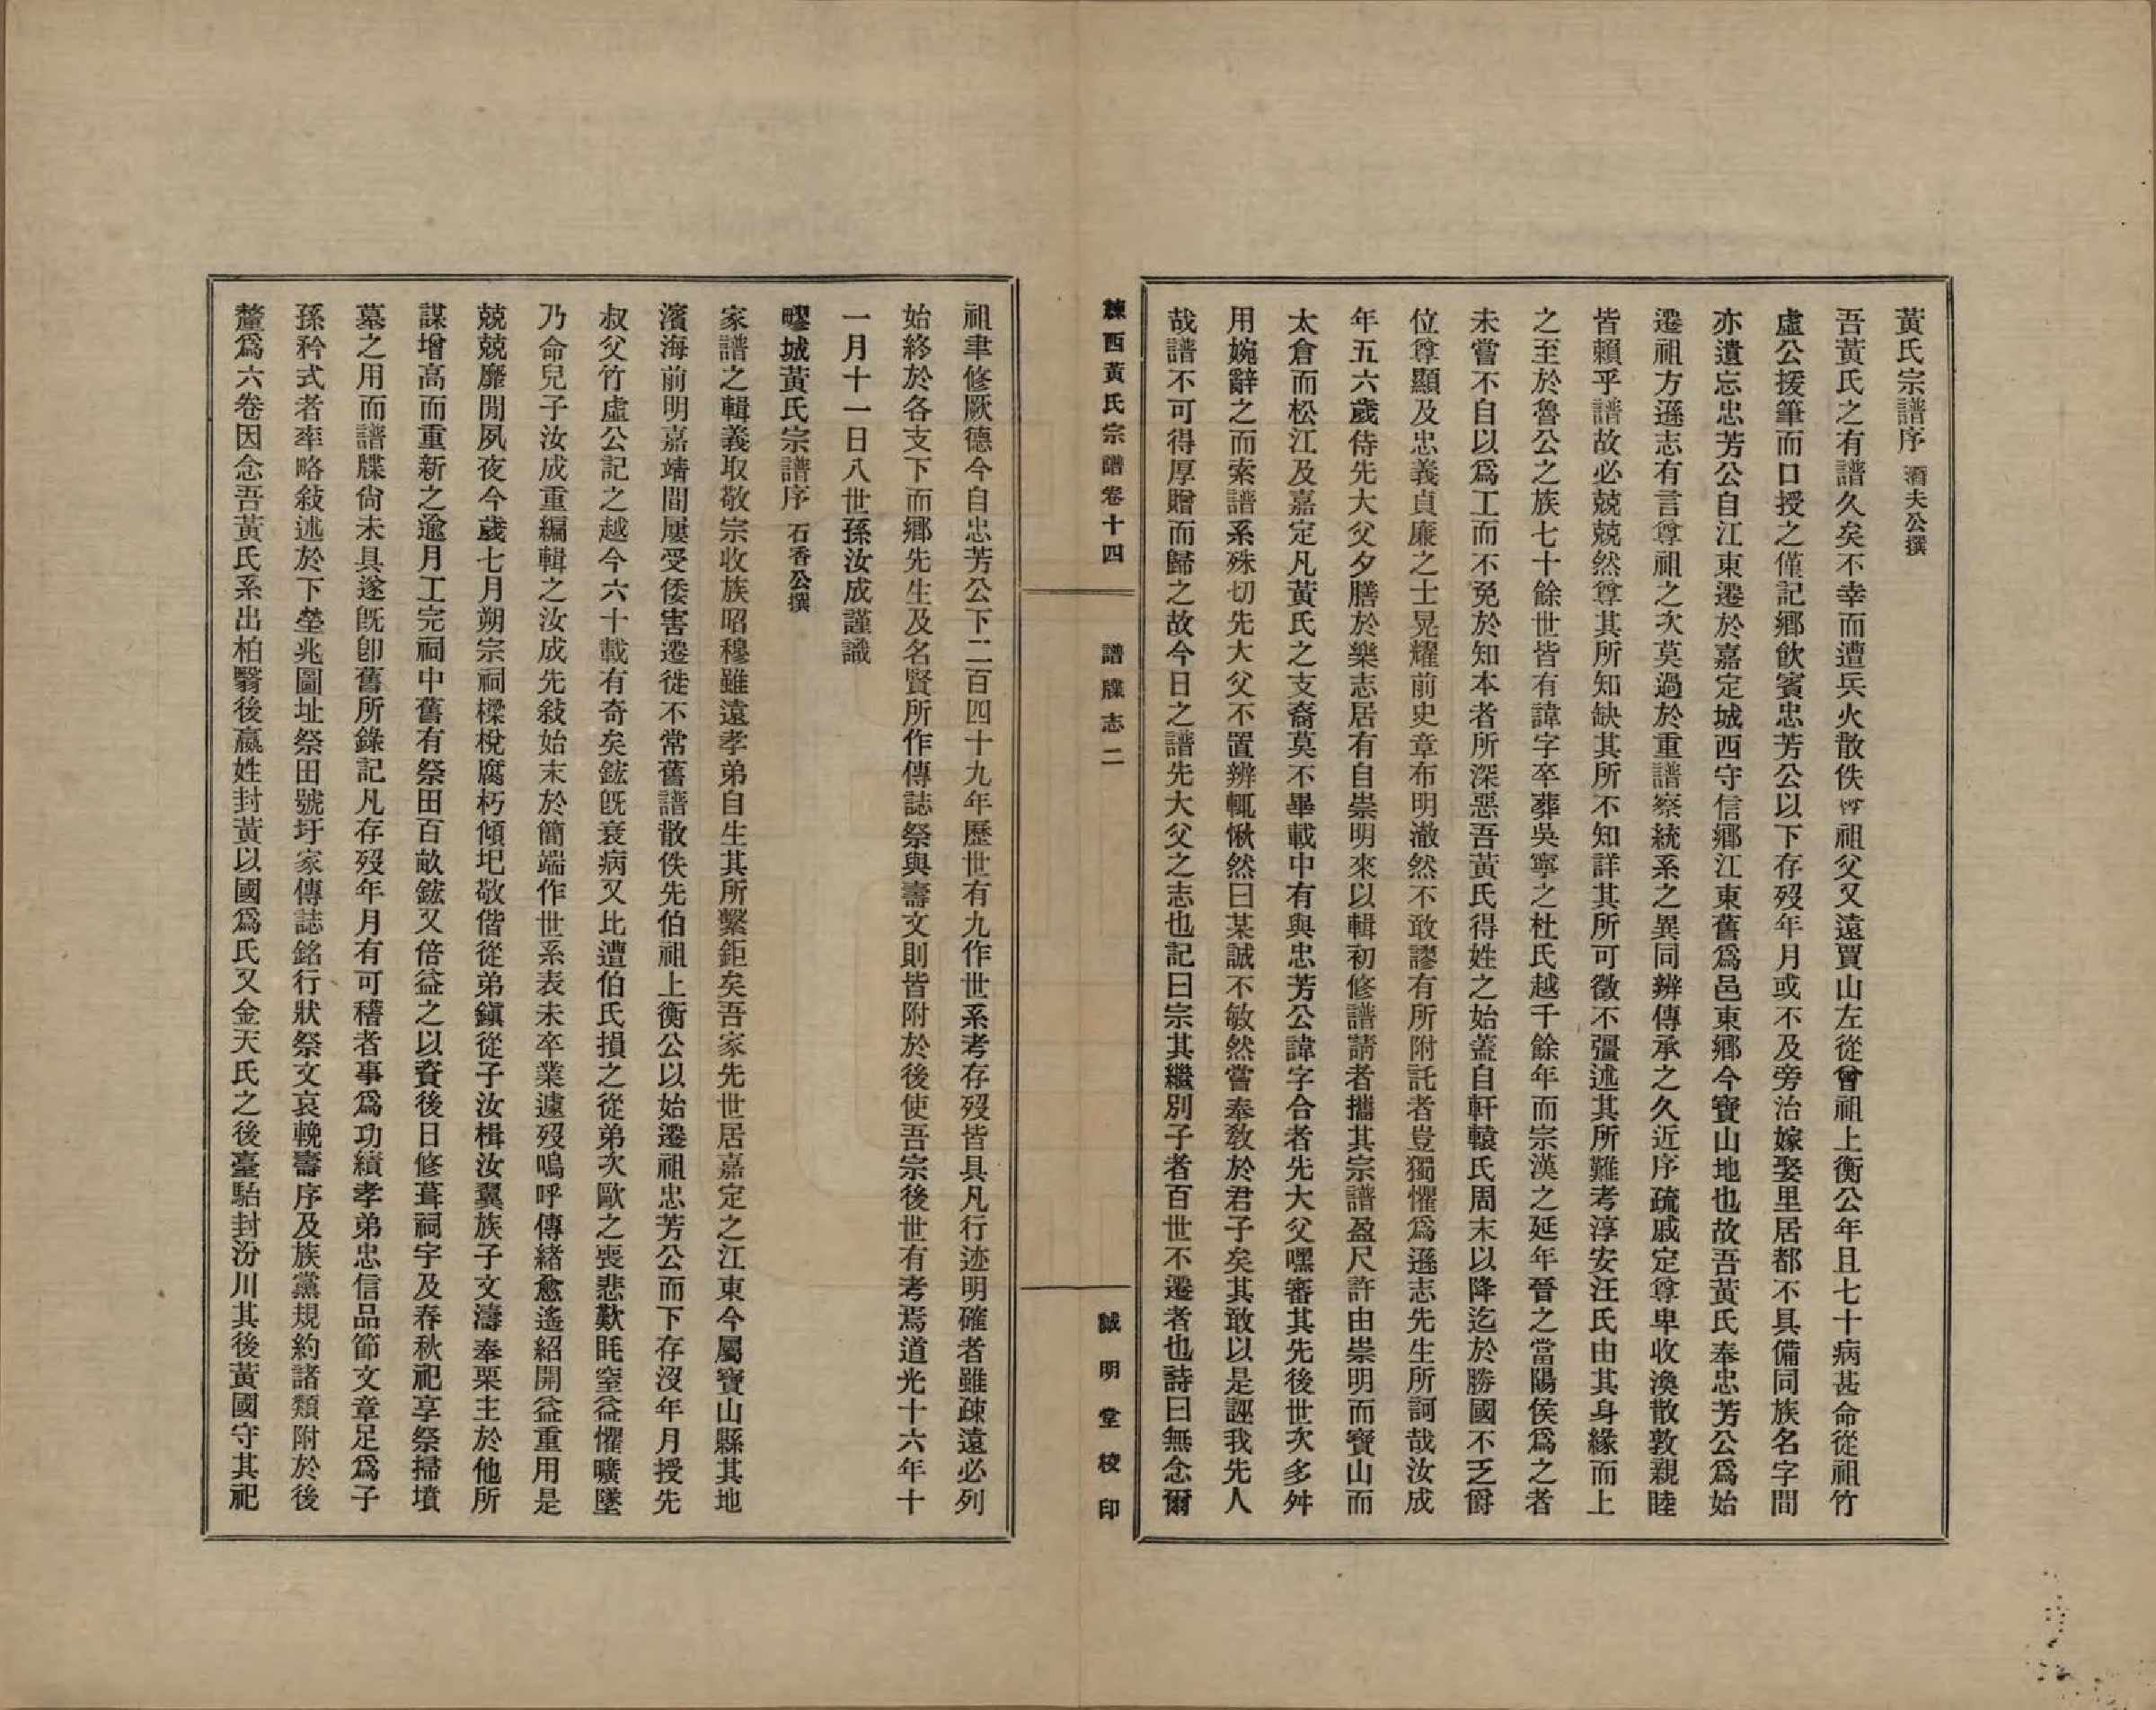 黃氏宗譜序 潛夫公撰
吾黃氏之有譜久矣不幸而遭兵火散佚曾祖父又遠賈山左從曾祖上衡公年且七十病甚命從祖竹
虛公援筆而口授之僅記鄉飲賓忠芳公以下存歿年月或不及旁治嫁娶里居都不具備同族名字間
亦遺忘忠芳公自江東遷於嘉定城西守信鄉江東舊爲邑東鄉今寶山地也故吾黃氏奉忠芳公爲始
遷祖方遜志有言尊祖之次莫過於重譜察統系之異同辨傳承之久近序疏戚定尊卑收渙散敦親睦
皆賴乎譜故必兢兢然尊其所知缺其所不知詳其所可徵不彊述其所難考淳安汪氏由其身緣而上
之至於魯公之族七十餘世皆有諱字卒葬吳寧之杜氏越千餘年而宗漢之延年晉之當陽侯爲之者
未嘗不自以爲工而不免於知本者所深惡吾黃氏得姓之始蓋自軒轅氏周末以降迄於勝國不乏爵
位尊顯及忠義貞廉之士晃耀前史章布明澈然不敢謬有所附託者豈獨懼爲遜志先生所訶哉汝成
年五六歲侍先大父夕膳於樂志居有自崇明來以輯初修譜請者攜其宗譜盈尺許由崇明而寶山而
太倉而松江及嘉定凡黃氏之支裔莫不畢載中有與忠芳公諱字合者先大父嘿審其先後世次多舛
用婉辭之而索譜系殊切先大父不置辨輒愀然曰某誠不敏然嘗奉敎於君子矣其敢以是誣我先人
哉譜不可得厚贈而歸之故今日之譜先大父之志也記曰宗其繼別子者百世不遷者也詩曰無念爾
練西黃氏宗譜卷十四 譜牒志二 誠明堂校印
祖聿修厥德今自忠芳公下二百四十九年歷世有九作世系考存歿皆具凡行迹明確者雖疎遠必列
始終於各支下而鄉先生及名賢所作傳誌祭與壽文則皆附於後使吾宗後世有考焉道光十六年十
一月十一日八世孫汝成謹識
疁城黃氏宗譜序 石香公撰
家譜之輯義取敬宗收族昭穆雖遠孝弟自生其所繫鉅矣吾家先世居嘉定之江東今屬寶山縣其地
濱海前明嘉靖間屢受倭害遷徙不常舊譜散佚先伯祖上衡公以始遷祖忠芳公而下存沒年月授先
叔父竹虛公記之越今六十載有奇矣鋐旣衰病又比遭伯氏損之從弟次歐之喪悲歎眊窒益懼曠墜
乃命兒子汝成重編輯之汝成先敍始末於簡端作世系表未卒業遽歿嗚呼傳緒愈遙紹開益重用是
兢兢靡閒夙夜今歲七月朔宗祠樑梲腐朽傾圯敬偕從弟鎭從子汝楫汝翼族子文濤奉栗主於他所
謀增高而重新之逾月工完祠中舊有祭田百畝鋐又倍益之以資後日修葺祠宇及春秋祀享祭掃墳
墓之用而譜牒尙未具遂旣卽舊所錄記凡存歿年月有可稽者事爲功績孝弟忠信品節文章足爲子
孫矜式者率略敍述於下塋兆圖址祭田號圩家傳誌銘行狀祭文哀輓壽序及族黨規約諸類附於後
釐爲六卷因念吾黃氏系出柏翳後嬴姓封黃以國爲氏又金天氏之後臺駘封汾川其後黃國守其祀